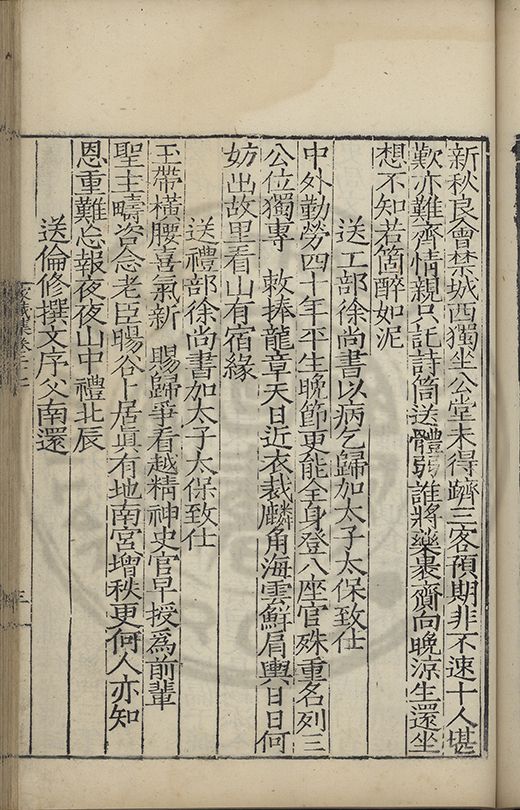 新秋良會禁城西獨坐公堂未得躋三客預期非不速十人堪
歎亦難齊情親只託詩筒送體弱誰將藥褁齎向晚凉生還坐
想不知若箇醉如泥
送工部徐尚書以病乞歸加太子太保致仕
中外勤勞四十年平生晚節更能全身登八座官殊重名列三
公位獨專 敕捧龍章天日近衣裁麟角海雲鮮肩輿日日何
妨出故里看山有宿緣
送禮部徐尚書加太子太保致仕
玉帶橫腰喜氣新 賜歸爭看越精神史官早授爲前輩
聖主疇咨念老臣暘谷卜居真有地南宮增秩更何人亦知
恩重難忘報夜夜山中禮北辰
送倫修撰文序父南還
家藏集卷二十
三